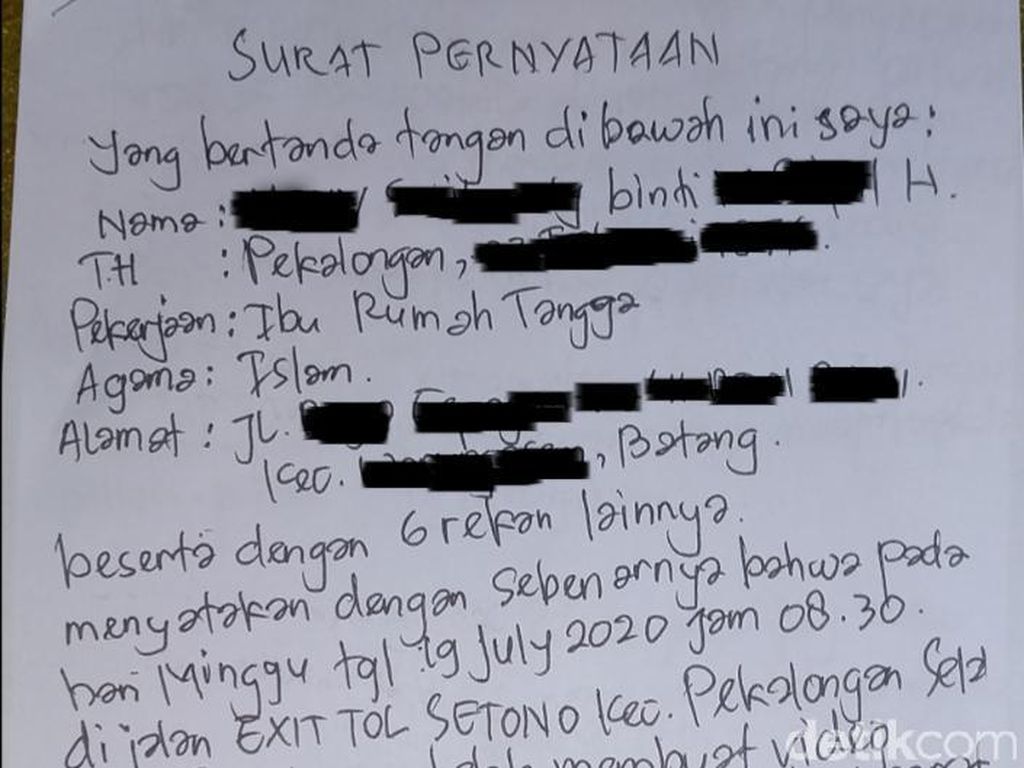 SURAT PERNYATAAN
yang bertanda tangan dibawah ini saya:
Nama : binti H.
T.H : Pekalongan,
Pekerjaan : Ibu Rumah Tangga
Agama : Islam.
Alamat : JL.
Kec. , Batang.
beserta dengan 6 rekan lainnya.
menyatakan dengan sebenarnya bahwa pada
hari Minggu tgl 19 july 2020 jam 08.30.
di jalan EXIT TOL SETONO Kec. Pekalongan Sela
membuat video
detikcom